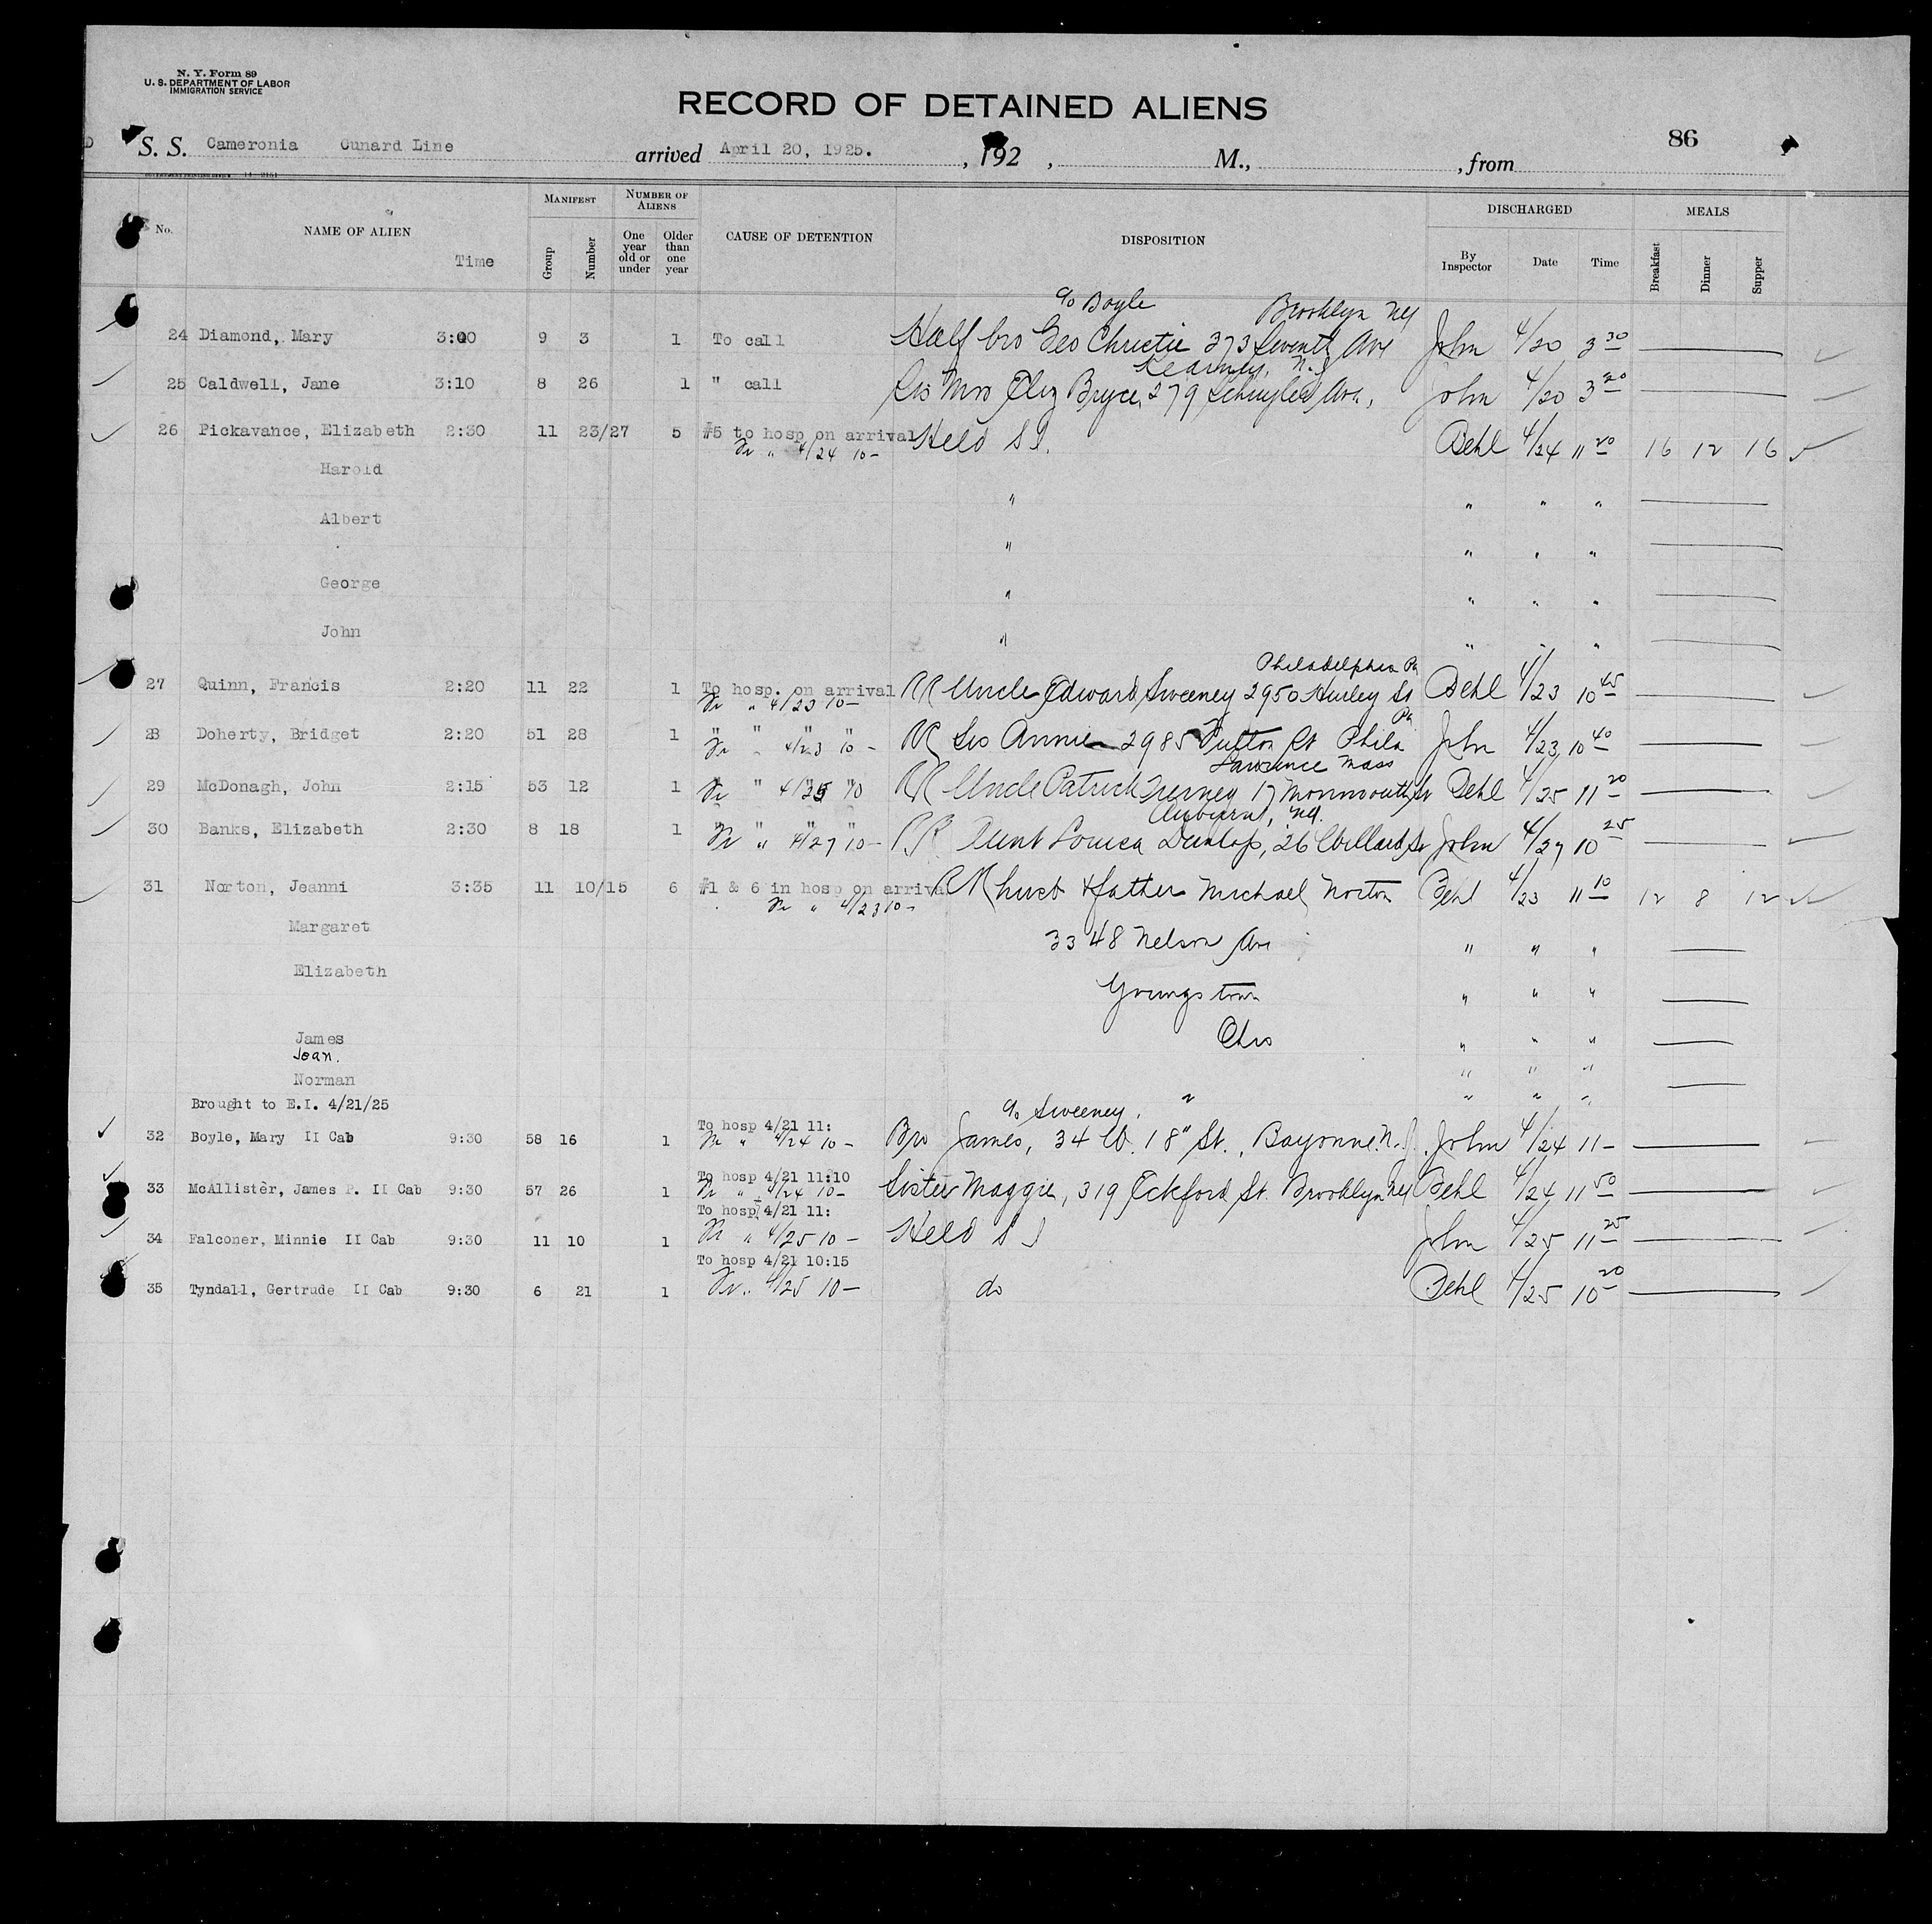 N. Y. Form 89
U. S. DEPARTMENT OF LABOR
IMMIGRATION SERVICE
RECORD OF DETAINED ALIENS
86
S. S. Cameronia Cunard Line arrived April 20, 1925. , 192 , M., , from
No. NAME OF ALIEN Time MANIFEST Group Number NUMBER OF ALIENS One year old or under Older than one year CAUSE OF DETENTION DISPOSITION DISCHARGED By Inspector Date Time MEALS Breakfast Dinner Supper
c/o Boyle Brooklyn NY
24 Diamond, Mary 3:00 9 3 1 To call Half bro Geo Christie 373 Seventh Ave John 4/20 3 30
Kearney, N.J
25 Caldwell, Jane 3:10 8 26 1 " call Sis Mrs Eliz Bryce, 279 Schuyler Ave, John 4/20 3 20
26 Pickavance, Elizabeth 2:30 11 23/27 5 #5 to hosp on arrival Held S I. Behl 4/24 11 20 16 12 16
Fr " 4/24 10-
Harold
" " " "
Albert
" " " "
George
" " " "
John
" " " "
Philadelphia Pa
27 Quinn, Francis 2:20 11 22 1 To hosp. on arrival RR Uncle Edward Sweeney 2950 Hurley St Behl 4/23 10 45
Fr " 4/23 10-
Pa
28 Doherty, Bridget 2:20 51 28 1 " " " " RR Sis Annie 2985 Phila John 4/23 10 40
Fr " 4/23 10 -
Lawrence Mass
29 McDonagh, John 2:15 53 12 1 Fr " 4/25 10 RR Uncle Patrick Tierney 17 Monmouth St Behl 4/25 11 20
Auburn, NY.
30 Banks, Elizabeth 2:30 8 18 1 " " " " RR Aunt Louisa Dunlap, 26 St John 4/27 10 25
Fr " 4/27 10-
31 Norton, Jeanni 3:35 11 10/15 6 #1 & 6 in hosp on arrival RR husb & father Michael Norton Behl 4/23 11 10 12 8 12
Fr " 4/23 10-
Margaret
3348 Nelson Ave " " "
Elizabeth
Youngstown " " "
James Ohio " " "
Jean.
" " "
Norman
Brought to E.I. 4/21/25 " " " "
c/o Sweeney,
To hosp 4/21 11:
32 Boyle, Mary II Cab 9:30 58 16 1 Fr " 4/24 10- Bro James, 34 W. 18" St., Bayonne N.J. John 4/24 11-
To hosp 4/21 11:10
33 McAllister, James P. II Cab 9:30 57 26 1 Fr " 4/24 10- Sister Maggie, 319 Eckford St. Brooklyn NY Behl 4/24 11 50
To hosp 4/21 11:
34 Falconer, Minnie II Cab 9:30 11 10 1 Fr " 4/25 10- Held S I John 4/25 11 25
To hosp 4/21 10:15
35 Tyndall, Gertrude II Cab 9:30 6 21 1 Fr " 4/25 10- do Behl 4/25 10 20